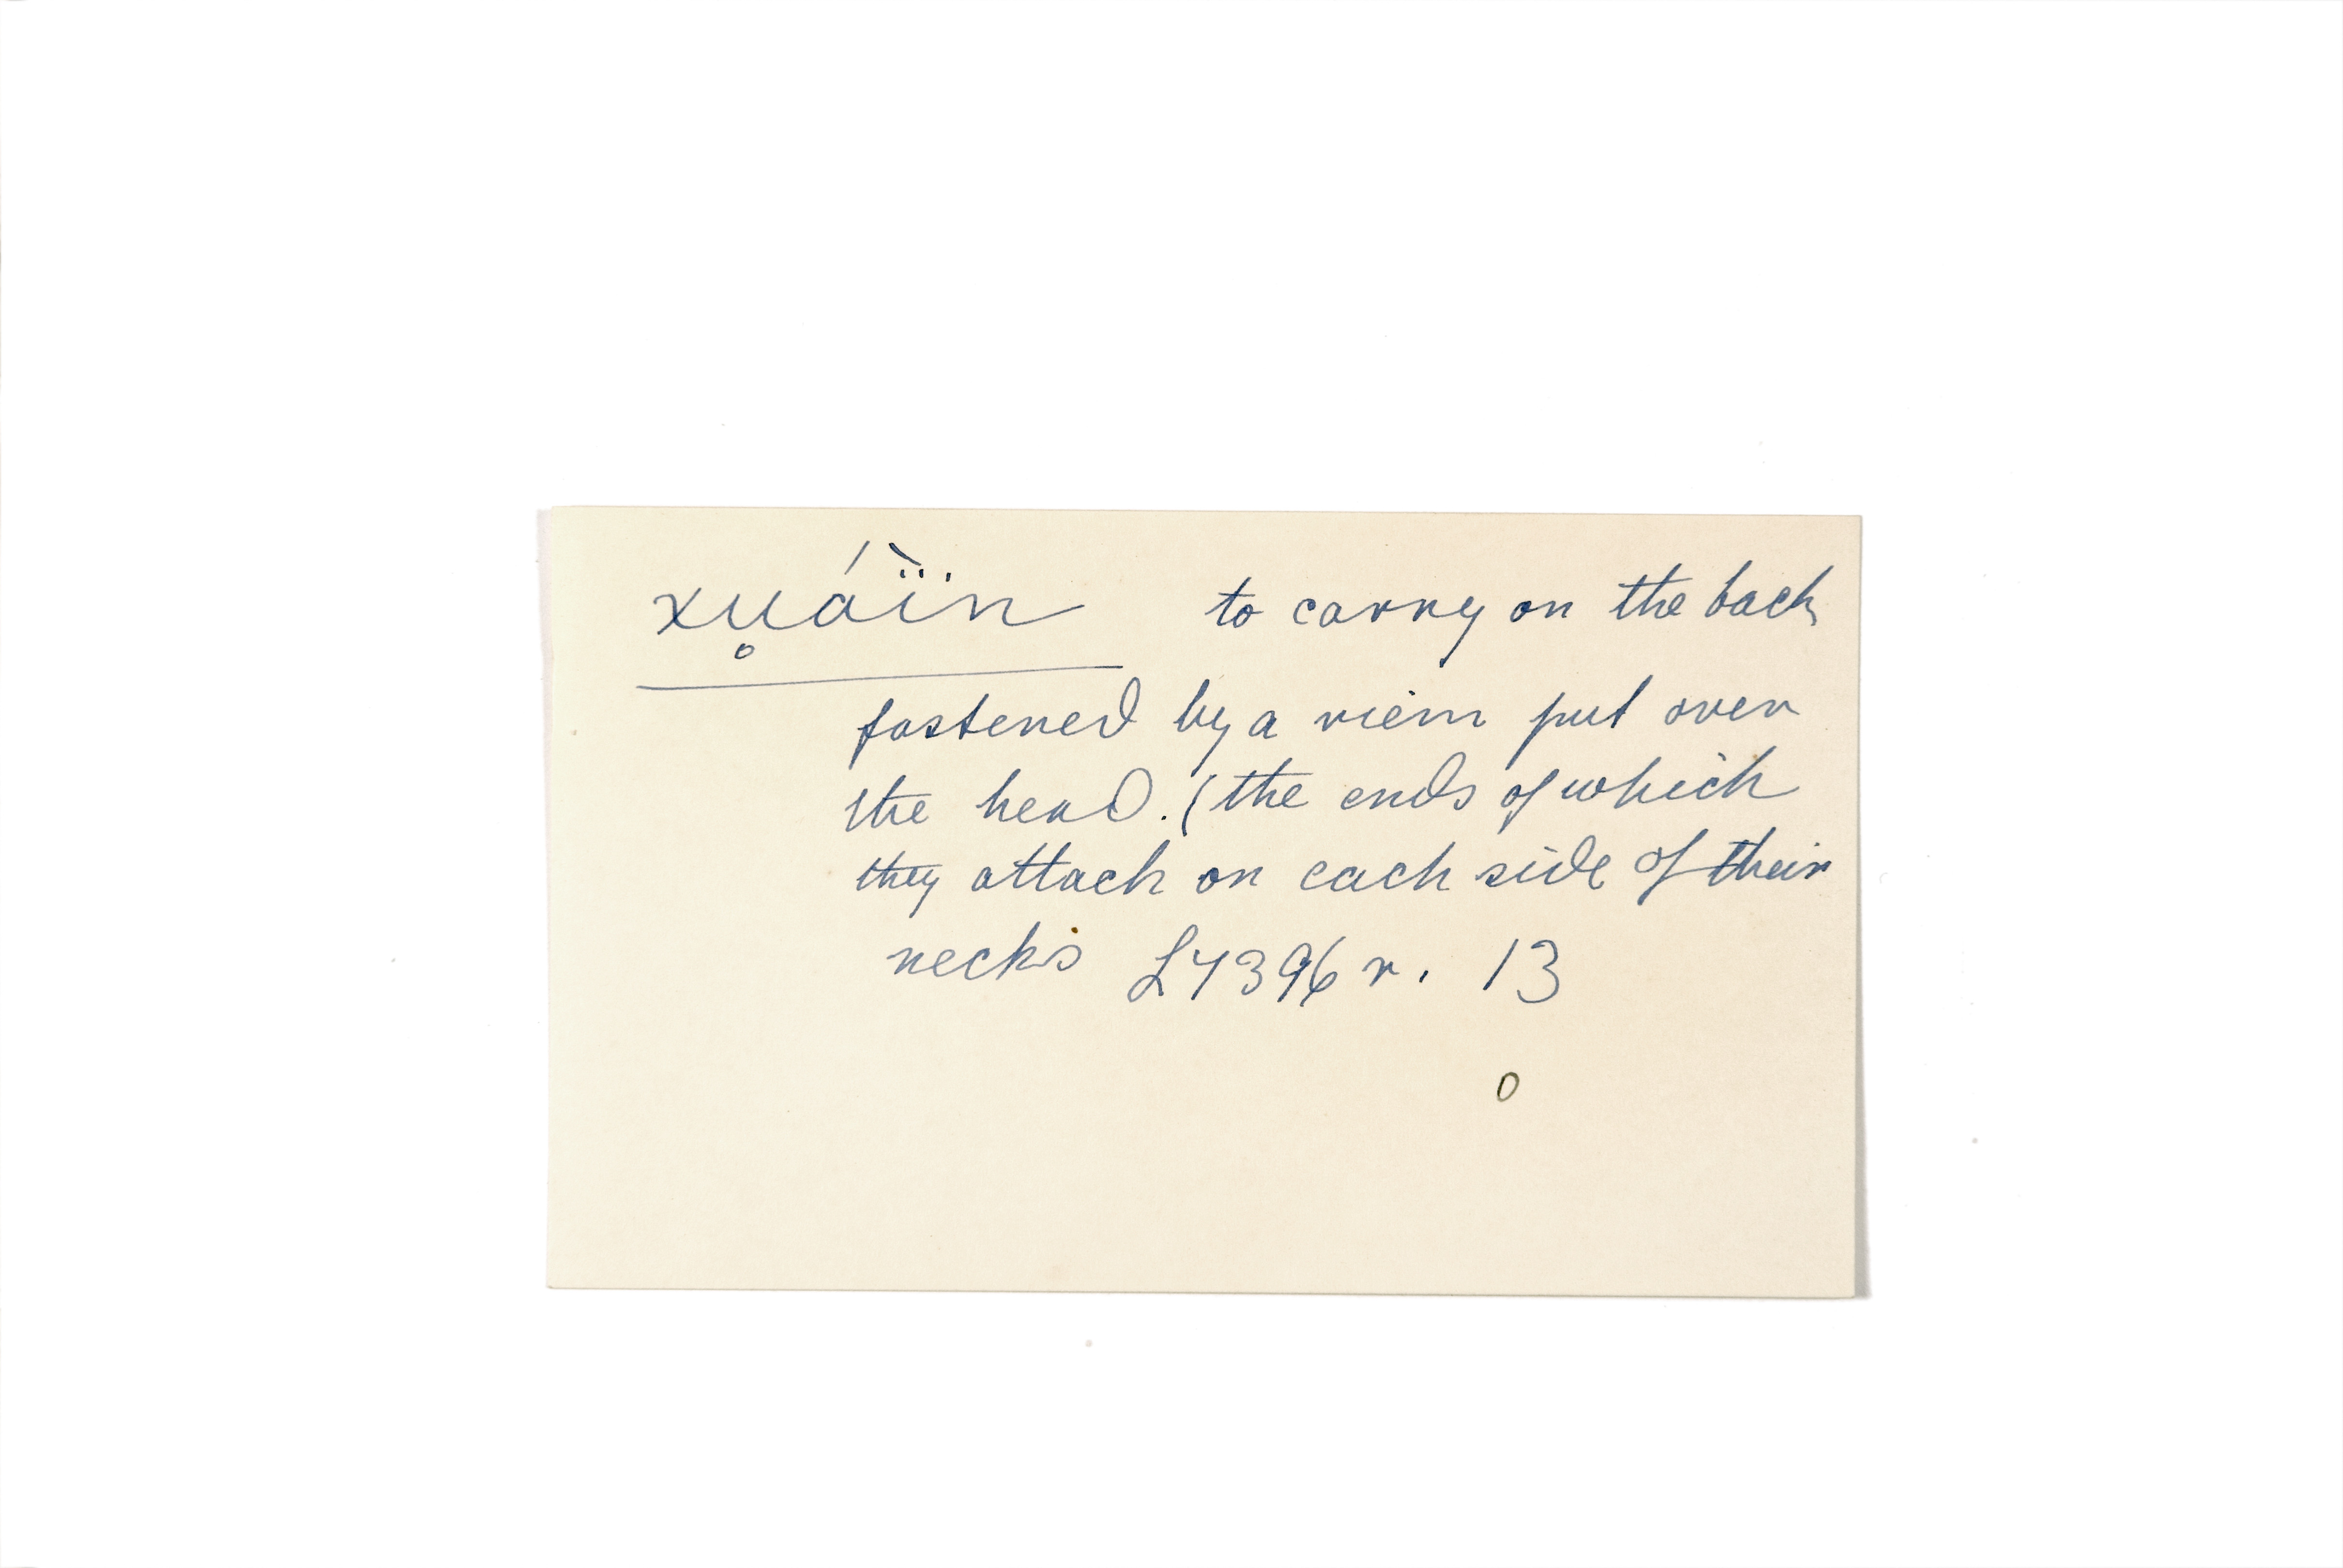 xu̥áï̀n to carry on the back
fastened by a riem put over
the head. (the ends of which
they attach on each side of their
necks £4396 r. 13
0